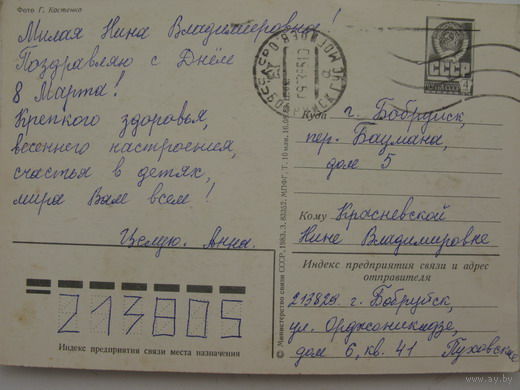 Фото Г. Костенко
Милая Нина Владимировна!
Поздравляю с Днём
8 Марта!
Крепкого здоровья,
весеннего настроения,
счастья в детях,
мира Вам всем!
Целую. Анна.
213805
Индекс предприятия связи места назначения
© Министерство связи СССР, 1983. З. 83252. МПФГ. Т. 10 млн. 16.
СССР
4
Куда г. Бобруйск,
пер. Баумана,
дом 5
Кому Красневской
Нине Владимировне
Индекс предприятия связи и адрес
отправителя
213829 г. Бобруйск,
ул. Орджоникидзе,
дом 6, кв. 41 Пуховская
www.ay.by